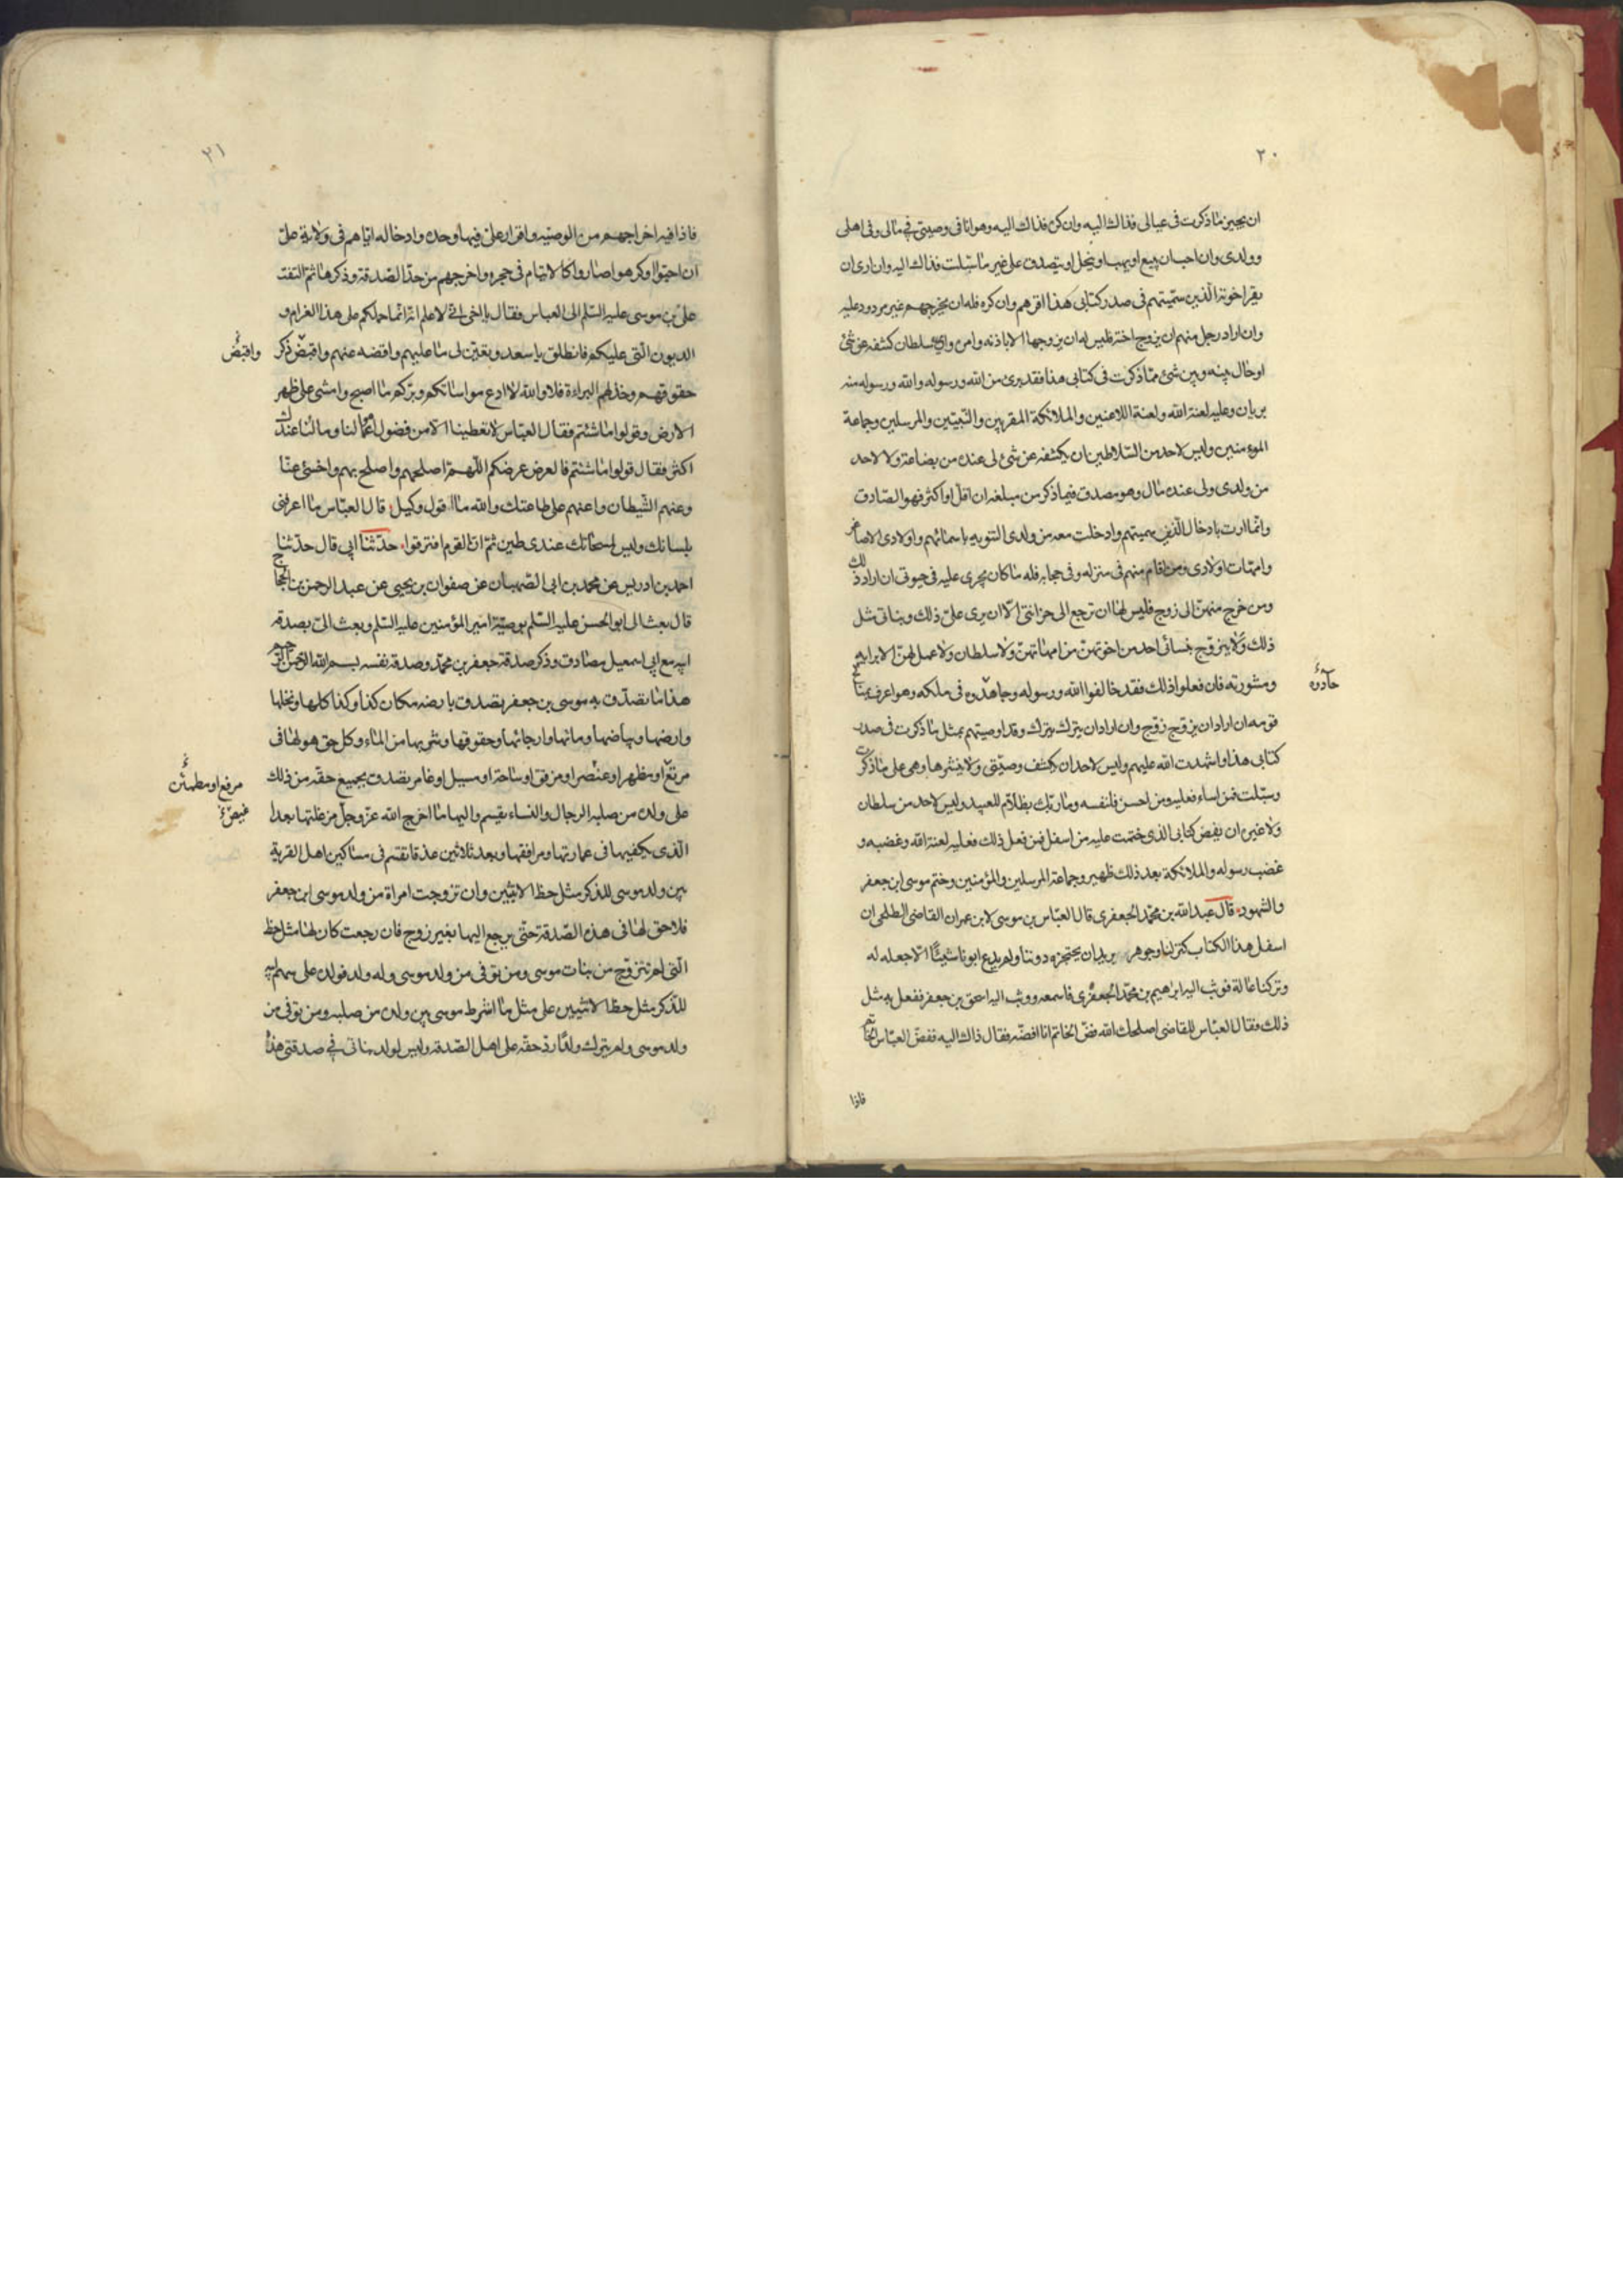 ٢٠
ان يجيز ما ذكرت فى عيالى فذاك اليه وان كره فذاك اليه وهو انا فى وصيتى فى مالى وفى اهلى
وولدى وان احب ان يبيع او يهب او ينحل او يتصدق على غير ما سبلت فذاك اليه وان راى ان
يقر اخوته الّذين سمّيتهم فى صدر كتابى هذا اقرهم وان كره فله ان يخرجهم غير مردود عليه
وان اراد رجل منهم ان يزوج اخته فليس له ان يزوجها الا باذنه وامره واى سلطان كشفه عن شئ
او حال بينه وبين شئ ممّا ذكرت فى كتابى هذا فقد برئ من الله ورسوله والله ورسوله منه
بريان وعليه لعنة الله ولعنة اللاعنين والملائكة المقربين والنّبيّين والمرسلين وجماعة
المومنين وليس لاحد من السّلاطين ان يكشفه عن شئ لى عنده من بضاعة ولا لاحد
من ولدى ولى عنده مال وهو مصدق فيما ذكر من مبلغه ان اقل او اكثر فهو الصّادق
وانّما اردت بادخال الّذين سميتهم وادخلت معه من ولدى التنويه باسمائهم واولادى الاصاغر
وامهّات اولادى ومن اقام منهم فى منزله وفى حجابه فله ما كان يجرى عليه فى حيوتى ان اراد ذلك
ومن خرج منهنّ الى زوج فليس لها ان ترجع الى حزانتى الّا ان يرى علىّ ذلك وبناتى مثل
ذلك ولا يتزوّج بنسائى احد من اخوتهنّ من امهاتهنّ ولا سلطان ولا عمل لهنّ الا برايه
حادّوه
ومشورته فان فعلوا ذلك فقد خالفوا الله ورسوله وجاهدّوه فى ملكه وهو اعرف بمناكح
قومه ان اراد ان يزوج زوج وان اراد ان يترك يترك وقد اوصيتهم بمثل ما ذكرت فى صدر
كتابى هذا واشهدت الله عليهم وليس لاحد ان يكشف وصيّتى ولا ينشرها وهى على ما ذكرت
وسبّلت فمن اساء فعليه ومن احسن فلنفسه وما ربّك بظلّام للعبيد وليس لاحد من سلطان
ولا غيره ان يفض كتابى الذى ختمت عليه من اسفل فمن فعل ذلك فعليه لعنة الله وغضبه و
غضب رسوله والملائكة بعد ذلك ظهير وجماعة المرسلين والمؤمنين وختم موسى ابن جعفر
والشهود قال عبد الله بن محمّد الجعفرى قال العبّاس بن موسى لابن عمران القاضى الطلحى ان
اسفل هذا الكتاب كنز لنا وجوهر يريد ان يحتجزه دوننا ولم يدع ابونا شيئًا الّا جعله له
وتركنا عالة فوثب اليه ابراهيم بن محمّد الجعفرى فاسمعه ووثب اليه اسحق بن جعفر ففعل به مثل
ذلك فقال العبّاس للقاضى اصلحك الله فضّ الخاتم انا افضّه فقال ذاك اليه ففضّ العبّاس الخاتم
فاذا
٢١
فاذا فيه اخراجهم من الوصيّه واقرار على فيها وحده وادخاله ايّاهم فى ولاية علىّ
ان احبّوا او كرهوا صاروا كالايتام فى حجره واخرجهم من حدّ الصّدقة وذكرها ثمّ التفت
علىّ بن موسى عليه السّلم الى العباس فقال يا اخى انّى لاعلم انّه انّما حملكم على هذا الغرام و
واقبضُ
الديون الّتى عليكم فانطلق يا سعد وتعيّن لى ما عليهم واقضه عنهم واقبضّ ذكر
حقوقهم وخذ لهم البراءة فلا والله لا ادع مواساتكم وبرّكم ما اصبح وامشى على ظهر
الارض وقولوا ما شئتم فقال العبّاس لا تعطينا الّا من فضول اموالنا وما لنا عندك
اكثر فقال قولوا ما شئتم فالعرض عرضكم اللّهمّ اصلحهم واصلح بهم واخسئ عنّا
وعنهم الشّيطان واعنهم على طاعتك والله ما اقول وكيل قال العبّاس ما اعرفنى
بلسانك وليس لمسحاتك عندى طين ثمّ انّ القوم افترقوا حدّثنا ابى قال حدّثنا
احمد بن ادريس عن محمد بن ابى الصّهبان عن صفوان بن يحيى عن عبد الرحمن بن الحجاج
قال بعث الى ابو الحسن عليه السّلم بوصيّة امير المؤمنين عليه السّلم وبعث الىّ بصدقة
ابيه مع ابى اسمعيل مصادف وذكر صدقة جعفر بن محمّد وصدقة نفسه بسم الله الرّحمن الرّحيم
هذا ما تصدّق به موسى بن جعفر تصدق بارضه مكان كذا وكذا كلها ونخلها
وارضها وبياضها ومائها وارجائها وحقوقها وشربها من الماء وكل حق هو لها فى
مرفع او مطمئن
مرتع او مظهر او عنصر او مرفق او ساحة او مسيل او غامر تصدق بجميع حقه من ذلك
على ولده من صلبه الرجال والنساء يقسم واليها ما اخرج الله عزّ وجلّ من غلتها بعد ا
الّذى يكفيها فى عمارتها ومرافقها وبعد ثلاثين عذقا تقسم فى مساكين اهل القرية
بين ولد موسى للذكر مثل حظ الانثيين وان تزوجت امراة من ولد موسى ابن جعفر
فلا حق لها فى هذه الصّدقة حتّى يرجع اليها بغير زوج فان رجعت كان لها مثل حظ
الّتى لم تتزوّج من بنات موسى ومن توفى من ولد موسى وله ولد فولده على سهم ابيه
للذّكر مثل حظ الانثيين على مثل ما اشرط موسى بين ولده من صلبه ومن توفى من
ولد موسى ولم يترك ولدًا ردّ حقّه على اهل الصّدقة وليس لولد بناتى فى صدقتى هذه